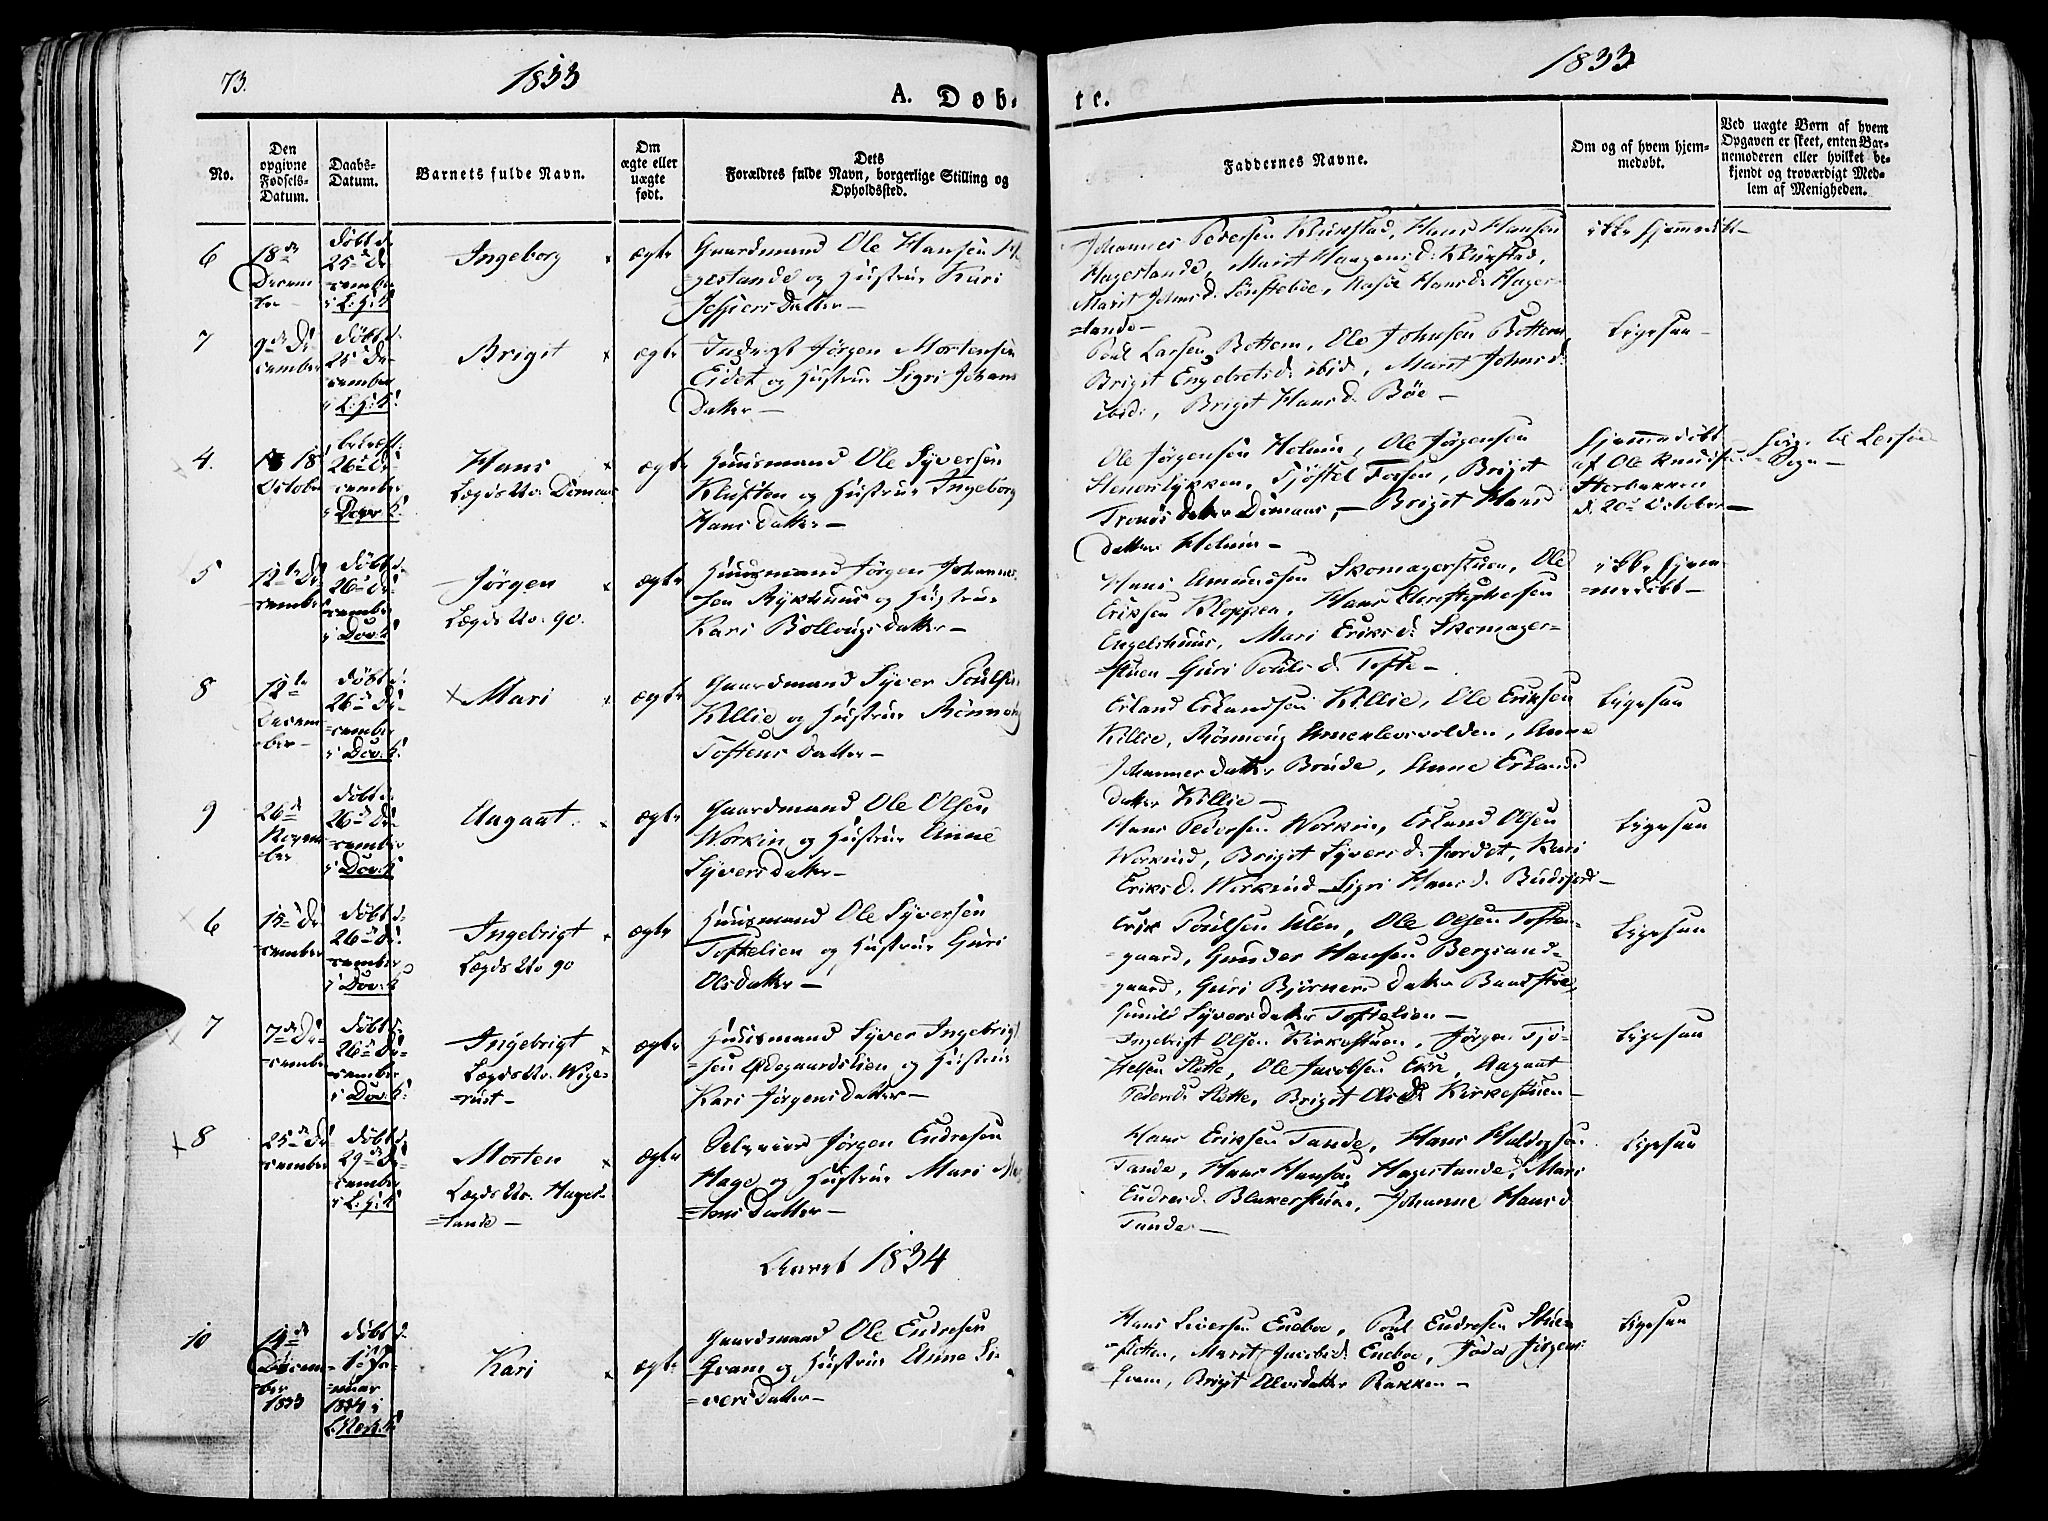 73.
1833
1833
A. Døb-
te.
No.
Den opgivne Fødsels-Datum.
Daabs-Datum.
Barnets fulde Navn.
Om ægte eller uægte født.
Dets Forældres fulde Navn, borgerlige Stilling og Opholdssted.
Faddernes Navne.
Om og af hvem hjem-medøbt.
Ved uægte Børn af hvem Opgaven er skeet, enten Bar-nemoderen eller hvilket be-kjendt og troværdigt Med-lem af Menigheden.
6
18de Decem
ber
døbt d.
25de De-
cember
i L: H: K!
Ingeborg
ægte
Gaardmand Ole Hansen
og Hustrue Kari
Jespersdatter
Johannes Pedersen Hans Hansen
Hagestande, Marit Haagensd:
Marit Johnsd. Hansd. Hage-
=stande
ikke hjemmedøbt
7
9de De-
cember
døbt d.
25de De-
cember
i L: H: K!
Brigit
ægte
Indrigt Jørgen Mortensen
Eidet og Hustrue Sigri Johans
Datter
Poul Larsen Bottem, Ole Johnsen Bottem
Brigit Engebretsd. ibid, Marit Johnsd.
ibid:, Brigit Hansd. Bøe
Ligesaa
4.
18
October
26de De-
cember
Hans
Lægds No. Domaas
ægte
Huusmand Ole Syversen
Kluften og Hustrue Ingeborg
Hansdatter
Ole Jørgensen Holum, Ole Jørgensen
Brigit
Trondsdatter Domaas, Brigit Hans
datter Holum
hjemmedøbt
af Ole Knudsen
d. 20de October
til Lessøe
5
12te De-
cember
døbt d.
26de De-
cember
i Dov: K!
Jørgen
Lægds No. 90.
ægte
Huusmand Jørgen Johannes
sen og Hustrue
Kari Bottolvsdatter
Hans Amundsen Skomagerstuen, Ole
Eriksen Kloppen, Hans Christophersen
Engelshuus, Mari Eriksd: Skomager-
stuen Guri Poulsd. Tofte
ikke hjem
medøbt
8
12te
Decem-
ber
døbt d.
26de De-
cember
i Dov: K!
Mari
ægte
Gaardmand Syver Poulsen
Killie og Hustrue Rønnoug
Tostensdatter
Erland Erlandsen Killie, Ole Eriksen
Killie, Rønnoug Anne
Johannesdatter Brude, Anne Erlands
datter Killie
Ligesaa
9
26de
Novem-
ber
døbt d.
26de De-
cember
i Dov: K
Aagaat
ægte
Gaardmand Ole Olsen
Workin og Hustrue Anne
Syversdatter
Hans Pedersen Workin, Erland Olsen
Workind, Brigit Syversd. Jordet, Kari
Eriksd. Workind Sigri Hansd.
Ligesaa
6
15de De
cember
døbt d.
26de De-
cember
i Dov: K
Ingebrigt
Lægds No 90
ægte
Huusmand Ole Syversen
Toftelien og Hustrue Guri
Olsdatter
Erik Poulsen Ulen, Ole Olsen Tofte-
=gaard, Gunder Hansen Bergsand-
gaard, Guri Bjørnersdatter
Gunild Syversdatter Toftelien
Ligesaa
7
7de De-
cember
døbt d.
26de De-
cember
i Dov: K!
Ingebrigt
Lægds No. Wige-
rust
ægte
Huusmand Syver Ingebrigt
sen Ødegaardslien og Hustrue
Kari Jørgensdatter
Ingebrigt Olsen Kirkestuen, Jørgen Tjø-
stelsen Slette, Ole Jacobsen Aagaat
Pedersd. Slette, Brigit Olsd. Kirkestuen
Ligesaa
8
25de De
cember
døbt d.
29de De-
cember
i L: H: K!
Morten
Lægds No. Hages-
=tande
ægte
Selveier Jørgen Endresen
Hage og Hustrue Mari Mor
=tensdatter
Hans Eriksen Tande, Hans Haldorsen
Tande, Hans Hansen Hagestande, Mari
Endresd. Blekerstuen, Johanne Hansd
Tande
Ligesaa
Aaret 1834
10
Decem
ber
1833
døbt d.
1ste Ja-
nuar
1834 i
Kari
ægte
Gaardmand Ole Endresen
Qvam og Hustrue Anne Si-
=versdatter
Hans Siversen Eneboe, Poul Endresen
Marit Jacobsd: Eneboe, Jørgens
Qvam, Brigit Olesdatter Bakken
Ligesaa